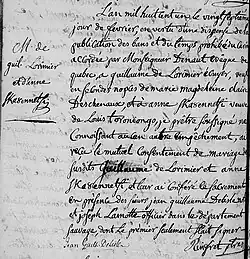 M. de
guil. Lorimier
et d'anne
Skasennetti
L'an mil huit cent un le vingt sept
jours de fevrier, en vertu d'une dispense de
publication des bans et du temps prohibé
accordée par Monseigneur Denaut Eveque de
quebec a guillaume de Lorimier écuyer, veuf
en secondes nopces de marie magdeleine claire
Brischenaux et a anne Skasennetti veuve
de Louis je prêtre soussigné ne
connaissant aucun autre empêchement ai
recu le mutuel Consentement de mariage
susdits Guillaume de Lorimier et anne
Skasennetti et leur ai conféré le sacrement
en presence des sieurs jean guillaume Delisle
et joseph Lamotte officier dans le département
sauvage dont le premier seulement a signé
Jean Guill. Delisle Rinfret ptre